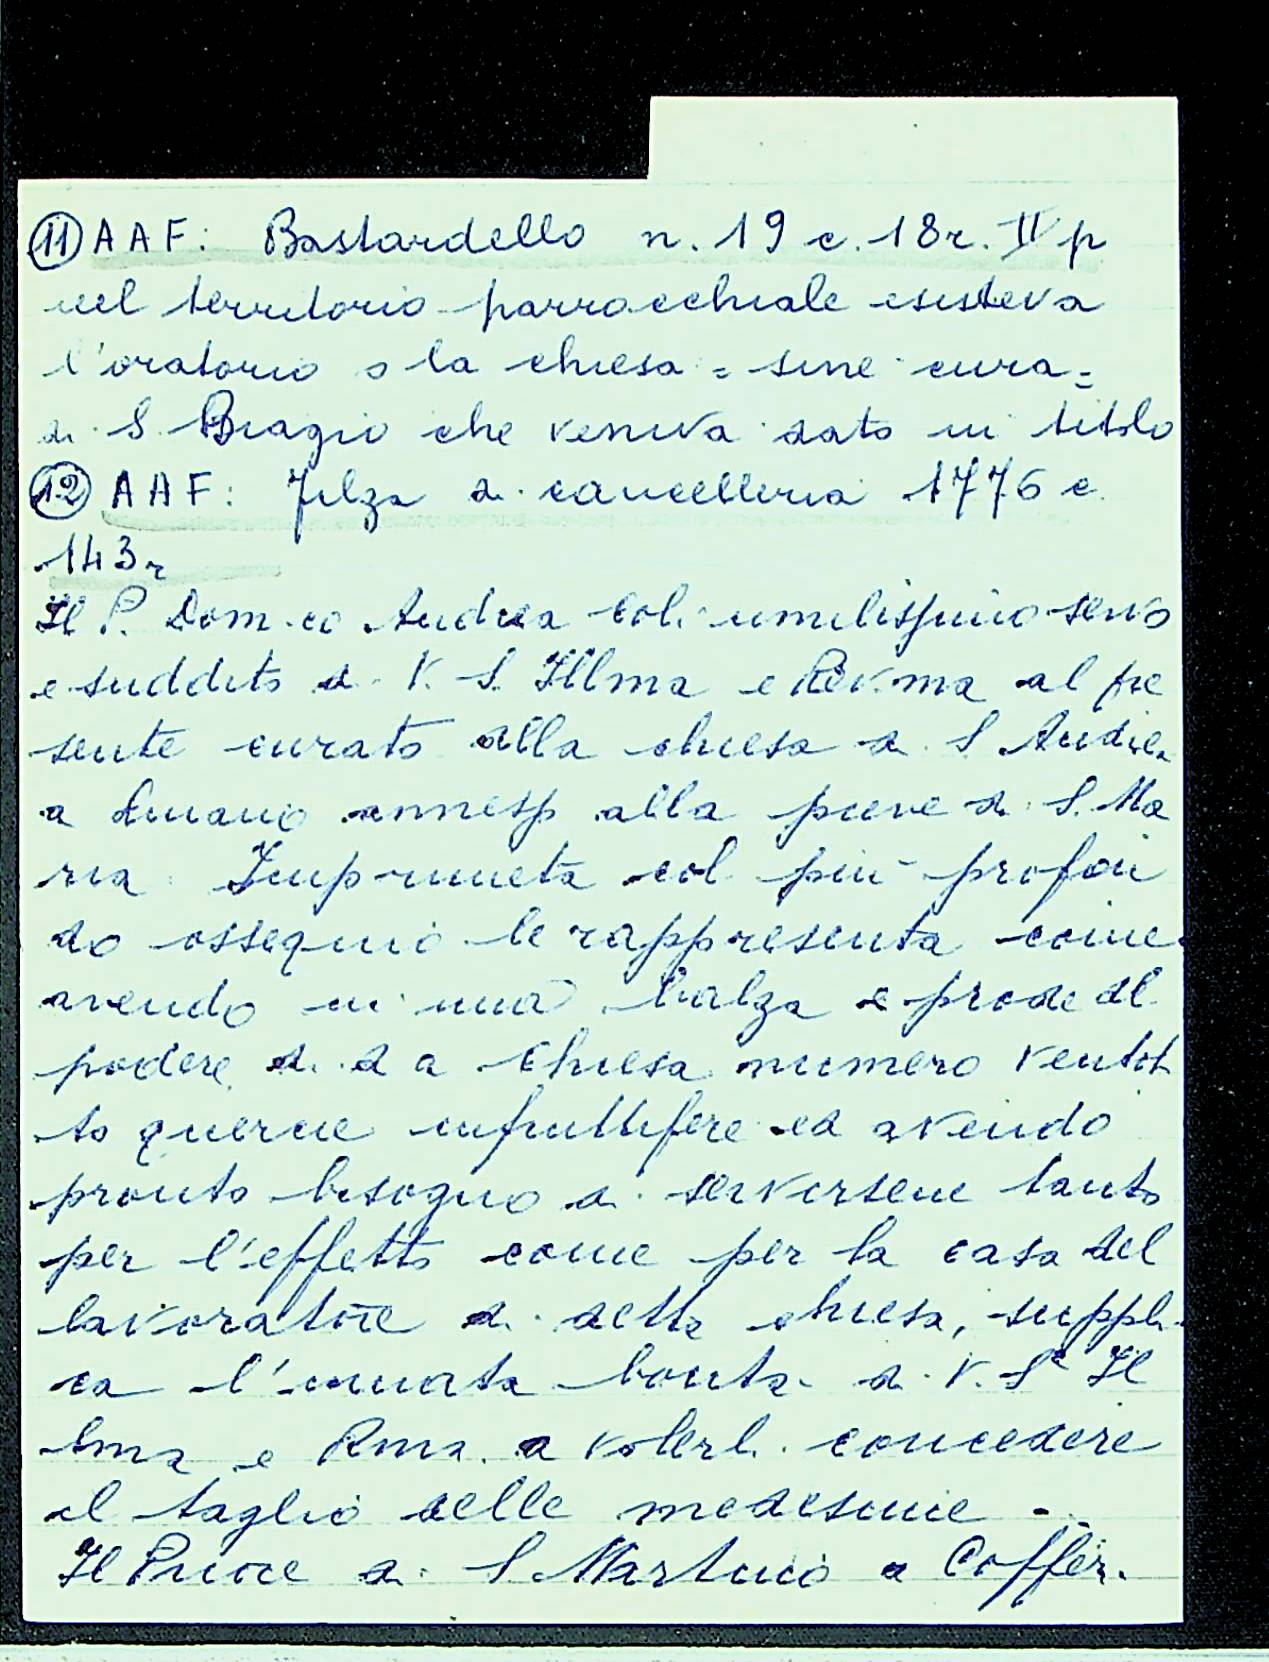 11 AAF: Bastardello n. 19 c. 18r. II p
nel territorio parrocchiale esisteva
l'oratorio o la chiesa = sine cura =
di S. Biagio che veniva dato in titolo
12 AAF: Filza di cancelleria 1776 c.
143r
Il P. Dom.co Andrea Col. umilissimo servo
e suddito di V. S. Illma e Rev.ma al pre
sente curato alla chiesa di S. Andrea
a Luiano annesp alla pieve di S. Ma
ria Impruneta col più profon
do ossequio le rappresenta come
avendo in una balza e prode del
podere di d a chiesa numero ventot
to querce infruttifere ed avendo
pronto bisogno di servirsene tanto
per l'effetto come per la casa del
lavoratore di detta chiesa, suppli-
ca l'innata bontà di V. S Il
lma e Rma a volerli concedere
il taglio delle medesime ...
Il Priore di S. Martino a Coffer.